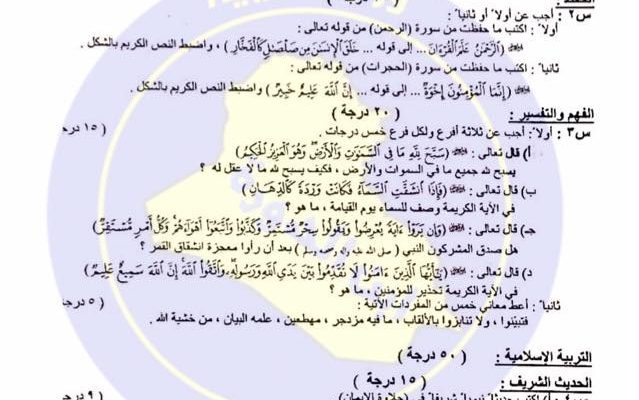 س٢ : أجب عن أولاً أو ثانياً :
أولاً : اكتب ما حفظت من سورة (الرحمن) من قوله تعالى :
(الرَّحْمَنُ عَلَّمَ الْقُرْءَانَ ... إلى قوله ... خَلَقَ الْإِنسَنَ مِن صَلْصَلٍ كَالْفَخَّارِ) ، واضبط النص الكريم بالشكل .
ثانياً : اكتب ما حفظت من سورة (الحجرات) من قوله تعالى :
(إِنَّمَا الْمُؤْمِنُونَ إِخْوَةٌ ... إلى قوله ... إِنَّ اللَّهَ عَلِيمٌ خَبِيرٌ) واضبط النص الكريم بالشكل .
الفهم والتفسير : ( ٢٠ درجة )
س٣ : أولاً : أجب عن ثلاثة أفرع ولكل فرع خمس درجات . (١٥ درجة
أ) قال تعالى : (سَبَّحَ لِلَّهِ مَا فِي السَّمَوَتِ وَالْأَرْضِ وَهُوَ الْعَزِيزُ الْحَكِيمُ)
يسبح لله جميع ما في السموات والأرض ، فكيف يسبح لله ما لا عقل له ؟
ب) قال تعالى : (فَإِذَا انشَقَّتِ السَّمَاءُ فَكَانَتْ وَرْدَةً كَالدِّهَانِ)
في الآية الكريمة وصف للسماء يوم القيامة ، ما هو ؟
جـ) قال تعالى : (وَإِن يَرَوْا ءَايَةً يُعْرِضُوا وَيَقُولُوا سِحْرٌ مُّسْتَمِرٌّ وَكَذَّبُوا وَاتَّبَعُوا أَهْوَاءَهُمْ وَكُلُّ أَمْرٍ مُّسْتَقِرٌّ)
هل صدق المشركون النبي (صلى الله عليه وآله وصحبه وسلم) بعد أن رأوا معجزة انشقاق القمر ؟
د) قال تعالى : (يَأَيُّهَا الَّذِينَ ءَامَنُوا لَا تُقَدِّمُوا بَيْنَ يَدَيِ اللَّهِ وَرَسُولِهِ وَاتَّقُوا اللَّهَ إِنَّ اللَّهَ سَمِيعٌ عَلِيمٌ)
في الآية الكريمة تحذير للمؤمنين ، ما هو ؟
ثانياً : أعط معاني خمس من المفردات الآتية : (٥ درجة
فتبيّنوا ، ولا تنابزوا بالألقاب ، ما فيه مزدجر ، مهطعين ، علمه البيان ، من خشية الله .
التربية الإسلامية : ( ٥٠ درجة )
الحديث الشريف : ( ١٥ درجة )
اكتب حديثاً نبوياً شريفاً في (حلاوة الإيمان) (٩ درجة